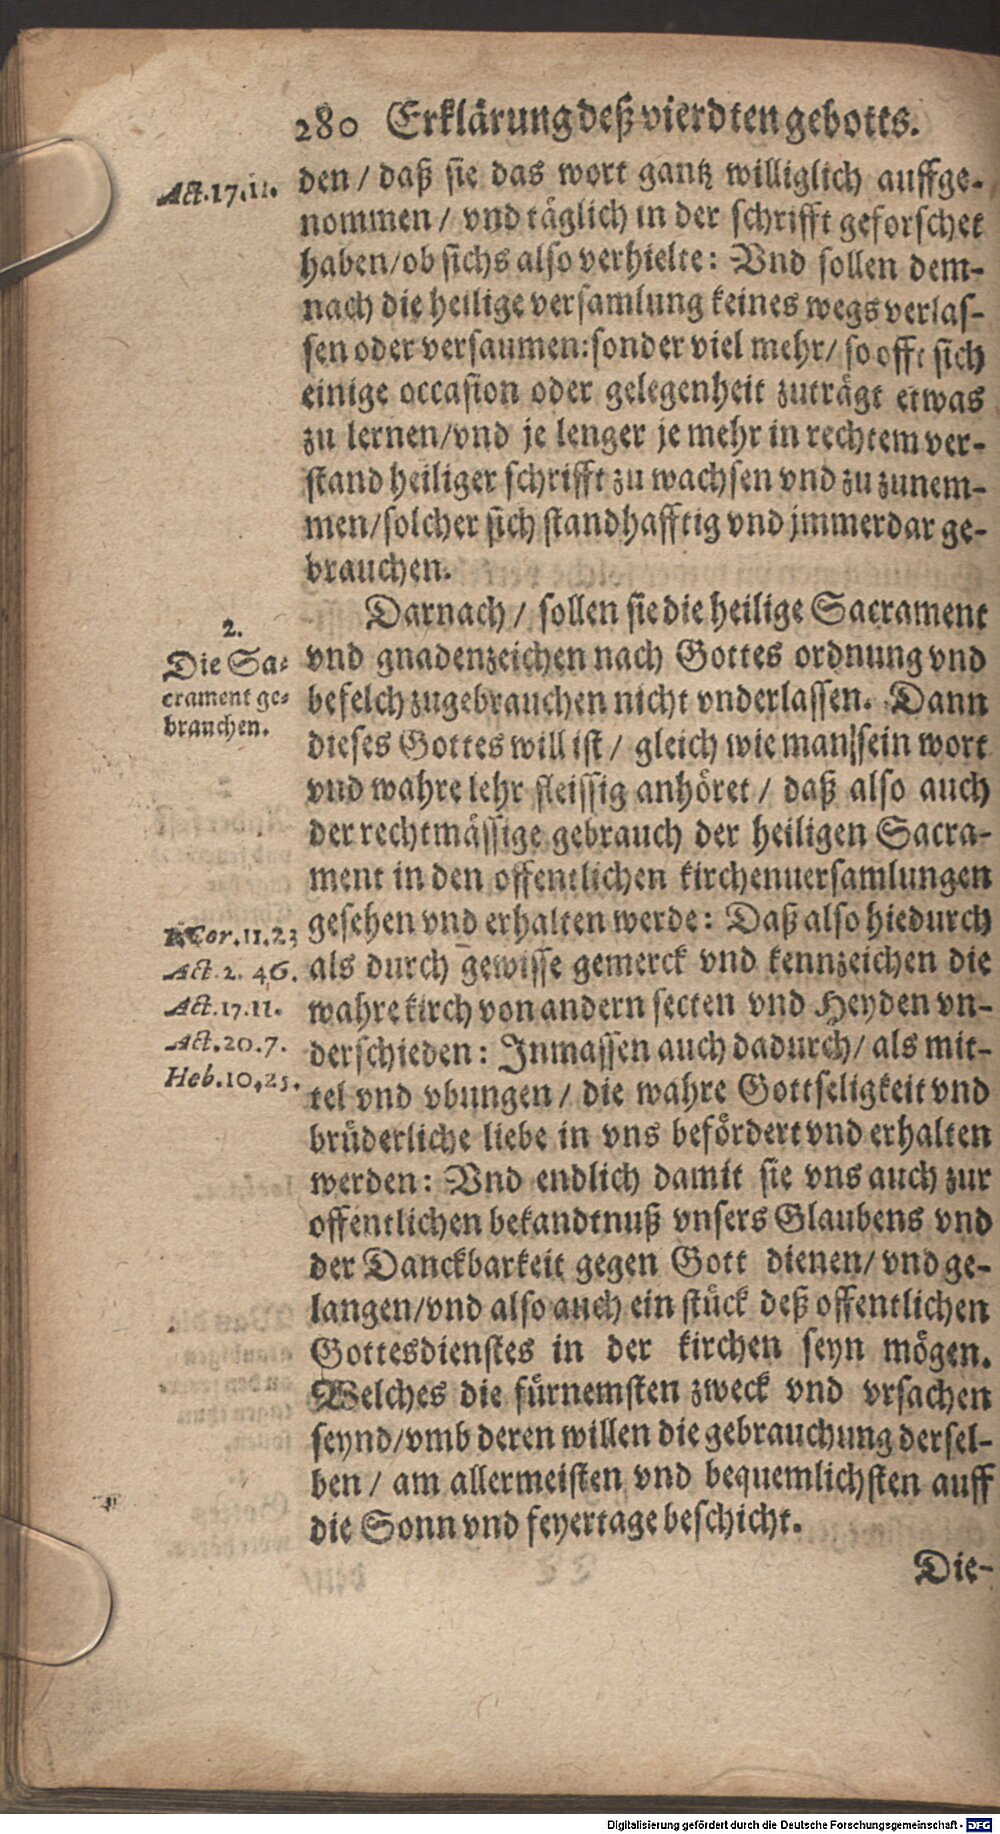 280 Erklärung deß vierdten gebotts.
Act.17.11.
den / daß sie das wort gantz williglich auffge-
nommen / vnd täglich in der schrifft geforschet
haben/ob sichs also verhielte: Vnd sollen dem-
nach die heilige versamlung keines wegs verlas-
sen oder versaumen: sonder viel mehr/ so offt sich
einige occasion oder gelegenheit zuträgt etwas
zu lernen/vnd je lenger je mehr in rechtem ver-
stand heiliger schrifft zu wachsen vnd zu zunem-
men/solcher sich standhafftig vnd jmmerdar ge-
brauchen.
2.
Die Sa-
crament ge-
brauchen.
Darnach / sollen sie die heilige Sacrament
vnd gnadenzeichen nach Gottes ordnung vnd
befelch zugebrauchen nicht vnderlassen. Dann
dieses Gottes will ist / gleich wie man sein wort
vnd wahre lehr fleissig anhöret / daß also auch
der rechtmässige gebrauch der heiligen Sacra-
ment in den offentlichen kirchenuersamlungen
gesehen vnd erhalten werde: Daß also hiedurch
als durch gewisse gemerck vnd kennzeichen die
wahre kirch von andern secten vnd Heyden vn-
derschieden: Inmassen auch dadurch/ als mit-
tel vnd vbungen / die wahre Gottseligkeit vnd
brüderliche liebe in vns befördert vnd erhalten
werden: Vnd endlich damit sie vns auch zur
offentlichen bekandtnuß vnsers Glaubens vnd
der Danckbarkeit gegen Gott dienen/ vnd ge-
langen/vnd also auch ein stück deß offentlichen
Gottesdienstes in der kirchen seyn mögen.
Welches die fürnemsten zweck vnd vrsachen
seynd/vmb deren willen die gebrauchung dersel-
ben / am allermeisten vnd bequemlichsten auff
die Sonn vnd feyertage beschicht.
1.Cor.11.23
Act.2.46.
Act.17.11.
Act.20.7.
Heb.10,25.
Die-
Digitalisierung gefördert durch die Deutsche Forschungsgemeinschaft - DFG